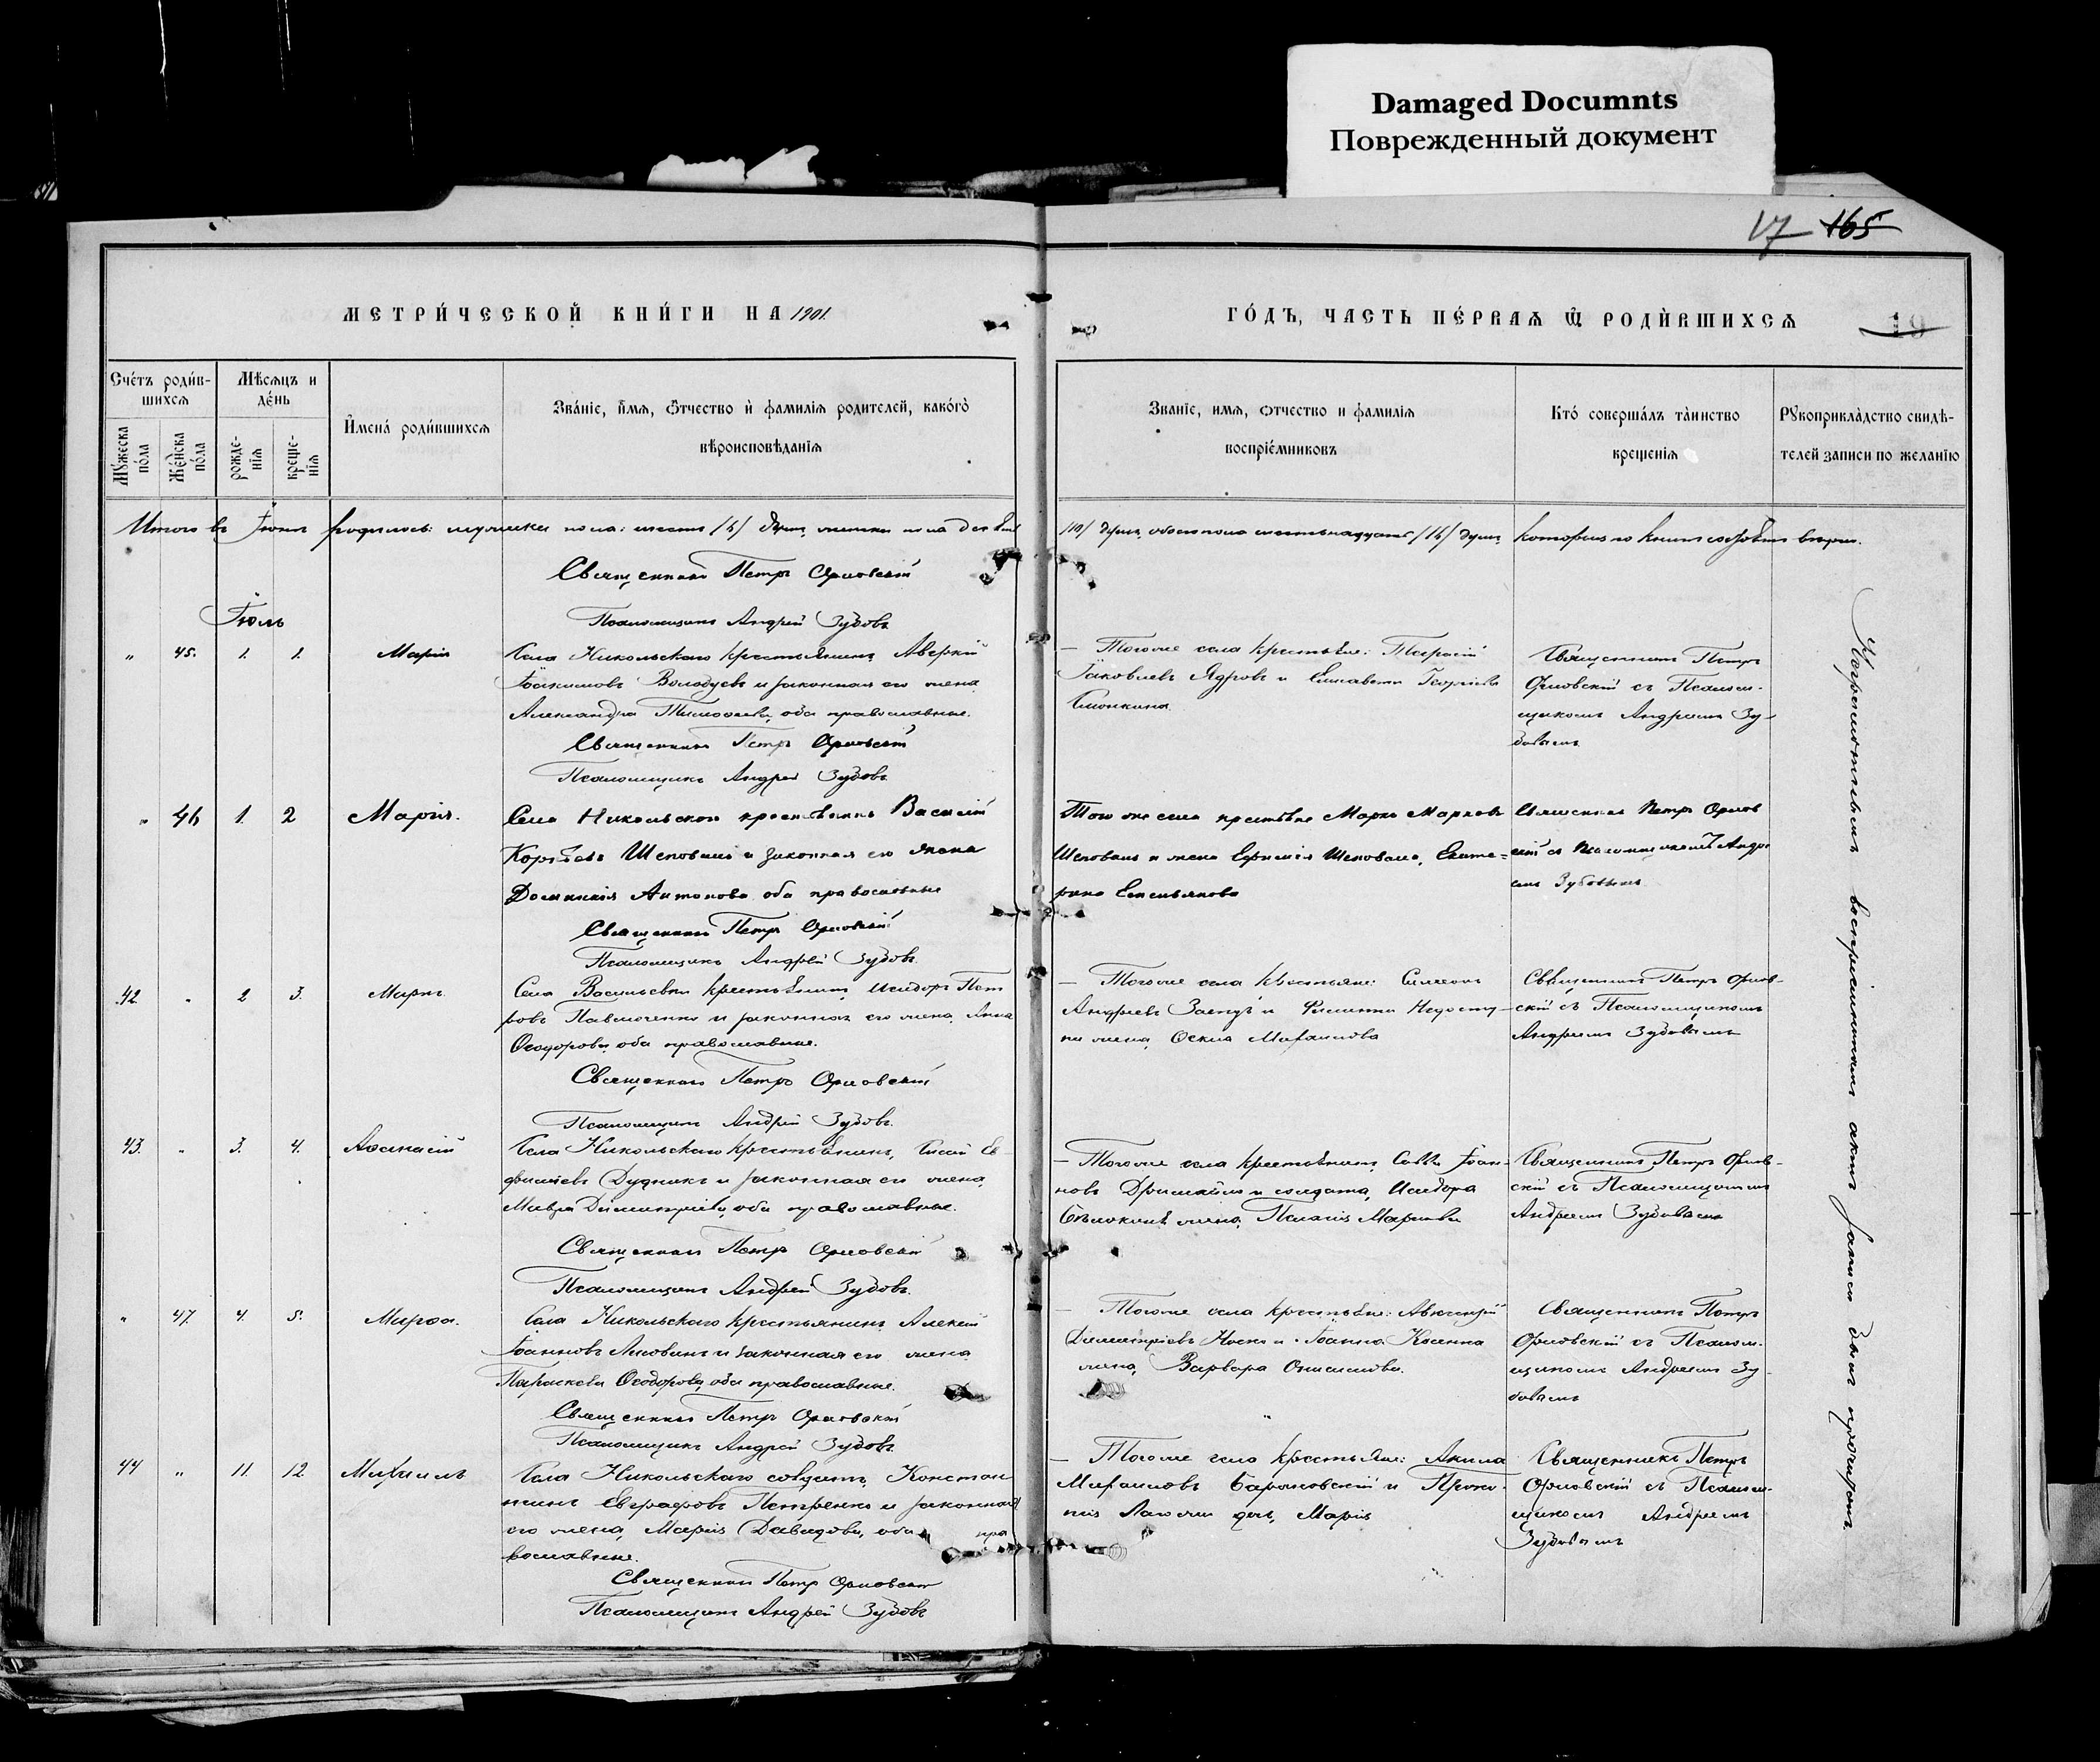 Damaged Documnts
Поврежденный документ
17 165
МЕТРИ́ЧЕСКОЙ КНИ́ГИ НА 1901.
ГО́ДЪ, ЧАСТЬ ПЕ́РВАѦ Ѿ РОДИ́ВШИХСѦ
19
Сче́тъ роди́вшихсѧ
Мѣсѧцъ и де́нь
Мꙋжеска по́ла
Же́нска по́ла
рожде-нїѧ
креще-нїѧ
И҆мена́ роди́вшихсѧ
Зва́нїе, и҆́мѧ, ѻ҆́тчество и҆ фами́лїѧ роди́телей, како́гѡ
вѣроисповѣ́данїѧ
Званїе, имѧ, ѻтчество и фамилїѧ
воспрїе́мниковъ
Кто́ соверша́лъ та̀инство
крещенїѧ
Рꙋкоприкла̀дство свидѣ-
телей записи по желанїю
Итого въ Іюнѣ родилось: мужеска пола: шесть /6/ душъ, женска пола десять
/10/ душъ, обоего пола шестьнадцать /16/ душъ,
Священникъ Петръ Орловскій
Іюль
Псаломщикъ Андрей Зубовъ
" 45. 1. 1. Марія
Села Никольскаго крестьянинъ Аверкій
Іоакимовъ Володуевъ и законная его жена
Александра Тимофеева, оба православные.
Того же села крестьяне:
Іаковлевъ Ядровъ и Елисавета Георгіева
Священникъ Петръ
Орловскій съ Псалом-
щикомъ Андреемъ Зу-
бовымъ
Священникъ Петръ Орловскій
Псаломщикъ Андрей Зубовъ
" 46 1. 2 Марія.
Села Никольскаго крестьянинъ Василій
Шеповалъ и законная его жена
Домникія Антонова оба православные
Того же села крестьяне Марко Марковъ
Шеповалъ и жена Ефимія Шеповала, Екате-
рина Емельянова
Священникъ Петръ Орлов
скій съ Псаломщикомъ Андре
емъ Зубовымъ
Священникъ Петръ Орловскій
Псаломщикъ Андрей Зубовъ
42. " 2 3. Марко
Села Васильевки крестьянинъ Исидоръ Пет
ровъ Павлюченко и законная его жена Анна
Ѳеодорова, оба православные.
Того же села крестьяне: Симеонъ
Андреевъ Заецъ и Филиппа
жена, Михаилова
Священникъ Петръ Орлов-
скій съ Псаломщикомъ
Андреемъ Зубовымъ
Священникъ Петръ Орловскій
Псаломщикъ Андрей Зубовъ.
43. " 3. 4. Аѳанасій
Села Никольскаго крестьянинъ, Ев-
фиміевъ Дудникъ и законная его жена
Мавра Димитріева, оба православные.
Того же села крестьянинъ Савва Іоан-
новъ и солдата, Исидора
жена, Пелагія Маркова
Священникъ Петръ Орлов-
скій съ Псаломщикомъ
Андреемъ Зубовымъ
Священникъ Петръ Орловскій
Псаломщикъ Андрей Зубовъ.
" 47. 4. 5. Марѳа.
Села Никольскаго крестьянинъ Алексій
Іоанновъ и законная его жена
Параскева Ѳеодорова, оба православные.
Того же села крестьяне: Авксентій
Димитріевъ Носко и Іоанна
жена, Варвара Онисимова.
Священникъ Петръ
Орловскій съ Псалом-
щикомъ Андреемъ Зу-
бовымъ
Священникъ Петръ Орловскій
Псаломщикъ Андрей Зубовъ
44 " 11. 12. Михаилъ
Села Никольскаго солдатъ, Констан
тинъ Евграфовъ Петренко и законная
его жена, Марія Давидова, оба пра
вославные.
Того же села крестьяне: Акила
Михаиловъ Барановскій и Проко-
пія дочь, Марія
Священникъ Петръ
Орловскій съ Псалом-
щикомъ Андреемъ
Зубовымъ
Священникъ Петръ Орловскій
Псаломщикъ Андрей Зубовъ
воспріемникамъ актъ записи былъ прочитанъ.